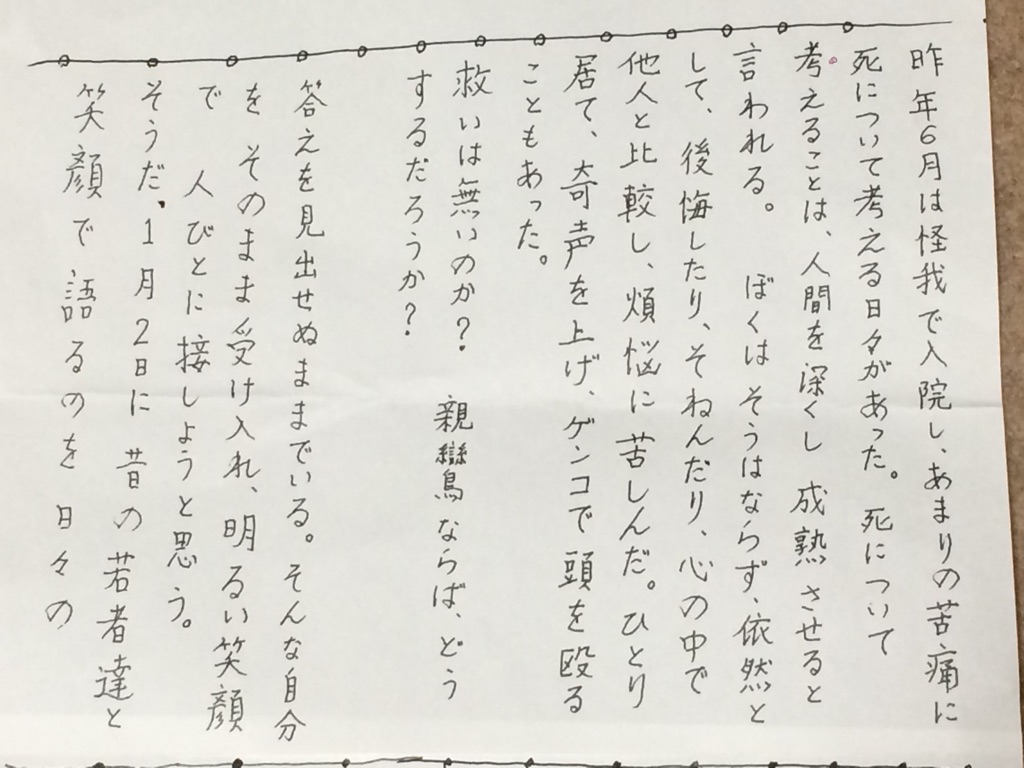 昨年6月は怪我で入院し、あまりの苦痛に
死について考える日々があった。死について
考えることは、人間を深くし 成熟させると
言われる。 ぼくはそうはならず、依然と
して、後悔したり、そねんだり、心の中で
他人と比較し、煩悩に苦しんだ。ひとり
居て、奇声を上げ、ゲンコで頭を殴る
こともあった。
救いは無いのか? 親鸞ならば、どう
するだろうか?
答えを見出せぬままでいる。そんな自分
を そのまま受け入れ、明るい笑顔
で 人びとに接しようと思う。
そうだ、1月2日に 昔の若者達と
笑顔で 語るのを 日々の